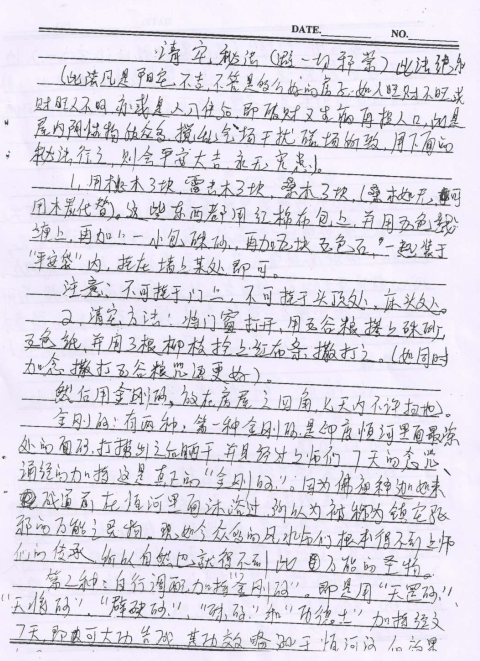 DATE. NO.
清宅秘法(一切邪祟)此法
(此法凡是阳宅不吉,不管是什么的房子,如人旺财不旺或
财旺人不旺,亦或是人入住后,即破财又生病再损人口,
屋内阴性物,气场干扰磁场所致,用下面的
秘法行之,则会平安大吉,永无
1,用桃木3块,雷击木3块,桑木3块,(桑木如无,可
用木炭代替)。这些东西都用红棉布包上,并用五色线
上,再加上一小包硃砂,再加五块五色石,一起装于
"平安袋"内,挂在墙上某处即可。
注意:不可挂于门上,不可挂于头顶处,床头处。
2,清宅方法:将门窗打开,用五谷粮拌上硃砂,
五色纸,并用3根柳枝拴上红布条,撒打之。(如同时
加念撒打五谷粮咒更好)。
然后用金刚砂,放在房屋之四角七天内不许扫地)。
金刚砂:有两种,第一种金刚砂是印度恒河里面最深
处的面砂,打捞出之后晒干并且上师们7天的念咒
的加持这是真正的"金刚砂"。因为佛释迦如来
成道前在恒河里面沐浴过,所以为被称为镇宅
的万能之圣物。现如今众多的风水师们根本得不到上师
们的传承,所以自然也就得不到此万能的圣物。
第二种:自行调配加持"金刚砂"。即是用"天罡砂"
"砂"、"辟砂"、"砂"和"功德土"加持经文
7天即可大功告成,其功效略于恒河沙的效果